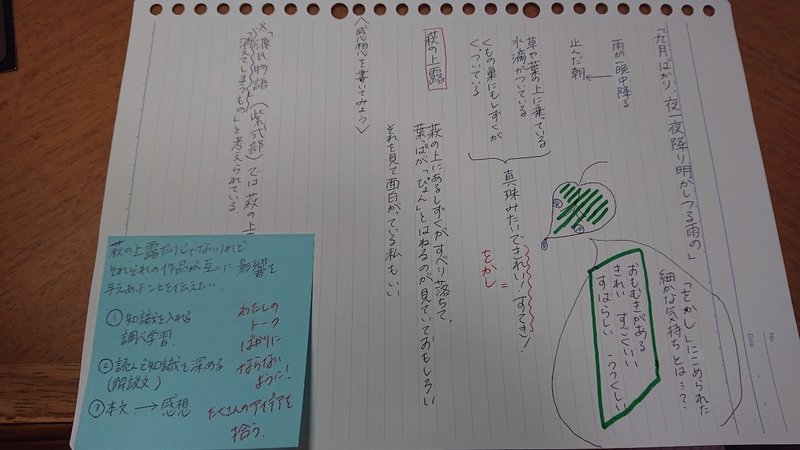 「九月ばかり、夜一夜降り明かしつる雨の」
雨が一晩中降る
止んだ朝
「をかし」にこめられた
細かな気持ちとは…?
おもむきがある
きれい すごくいい
すばらしい うつくしい
草や葉の上に乗っている
水滴がついている
くもの巣にもしずくが
くっついている
真珠みたいできれい!すてき!
=
をかし
萩の上露
萩の上にあるしずくがすべり落ちて、
葉っぱが「ぴょん」とはねるのが見ていておもしろい
それを見て面白がっている私もいい
〈感想を書いてみよう〉
※『源氏物語』(紫式部)では萩の上
「消えてしまうもの」と考えられている。
萩の上露だけじゃないけれど
それぞれの作品が互いに影響を
与えあたことを伝えたい
①知識を入れる
調べ学習
②読んで知識を深める
(解説文)
③本文→感想
わたしの
トーク
ばかりに
ならない
ように!
たくさんのアイデアを
拾う。
No.
Date